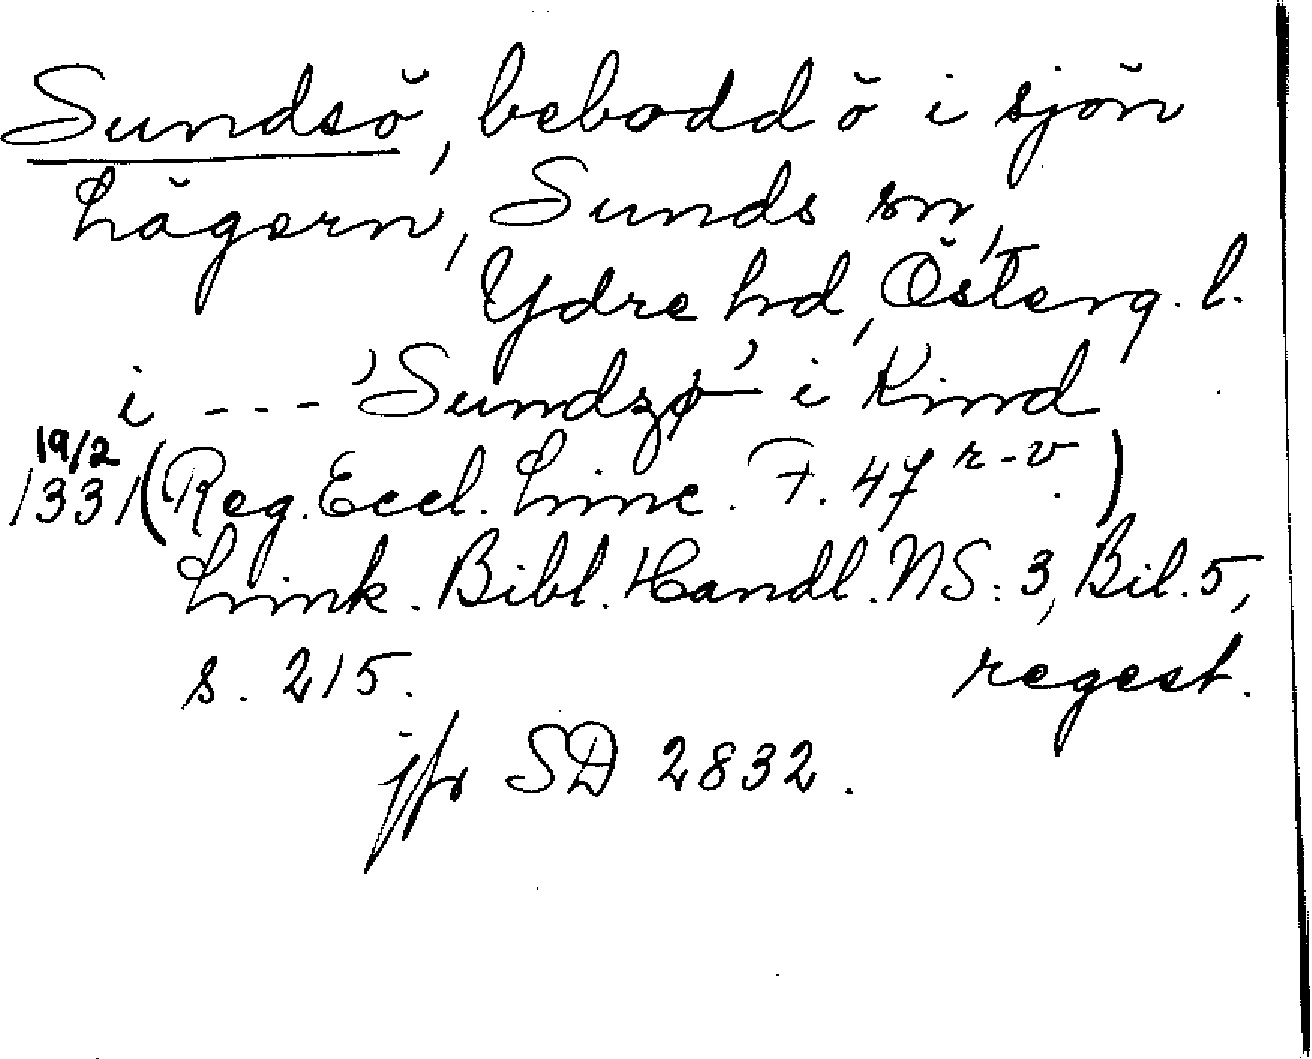 Sundsö, bebodd ö i sjön
Lägern, Sunds sn,
Ydre hd, Österg. l.
i --- 'Sundzø' i Kind
19/2
1331 (Reg. Eccl. Linc. F. 47 r-v.)
Link. Bibl. Handl. NS: 3, Bil. 5,
s. 215. regest.
jfr SD 2832.